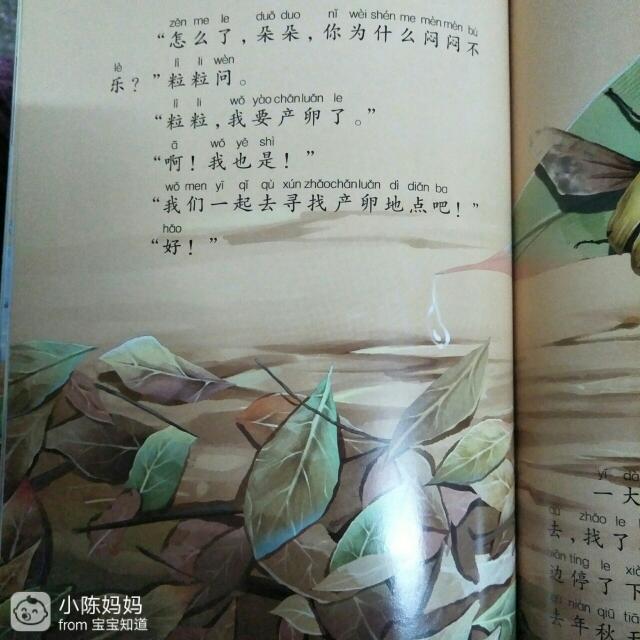 zěn me le duǒ duo nǐ wèi shén me mèn mèn bú
“怎么了，朵朵，你为什么闷闷不
lè lì li wèn
乐？”粒粒问。
lì li wǒ yào chǎn luǎn le
“粒粒，我要产卵了。”
ā wǒ yě shì
“啊！我也是！”
wǒ men yī qǐ qù xún zhǎo chǎn luǎn dì diǎn ba
“我们一起去寻找产卵地点吧！”
hǎo
“好！”
一大
zhǎo le
去，找了
tíng le
边停了下
nián qiū
去年秋
小陈妈妈
from 宝宝知道